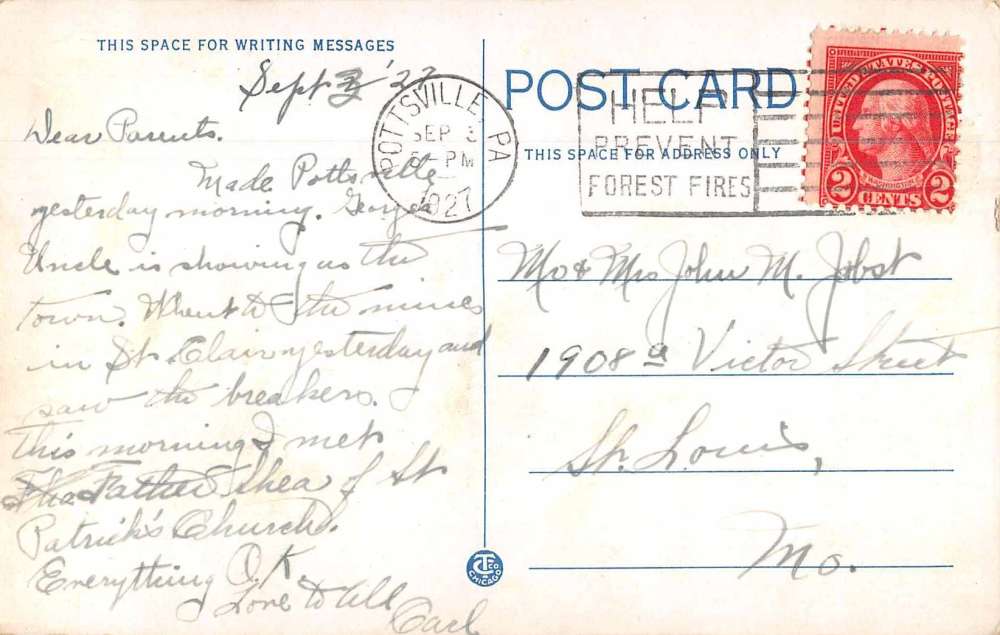 THIS SPACE FOR WRITING MESSAGES
Sept 3 '27
Dear Parents.
Made Pottsville
yesterday morning. George's
Uncle is showing us the
town. Whent to the mines
in St Clair yesterday and
saw the breakers.
This morning I met
Father Shea of St
Patrick's Church.
Everything O.K.
Love to All
Carl
POST CARD
THIS SPACE FOR ADDRESS ONLY
POTTSVILLE, PA
SEP 3
PM
1927
HELP
PREVENT
FOREST FIRES
UNITED STATES POSTAGE
WASHINGTON
2 CENTS 2
Mr & Mrs John M. Jobst
1908a Victor Street
St. Louis,
Mo.
CTCO
CHICAGO